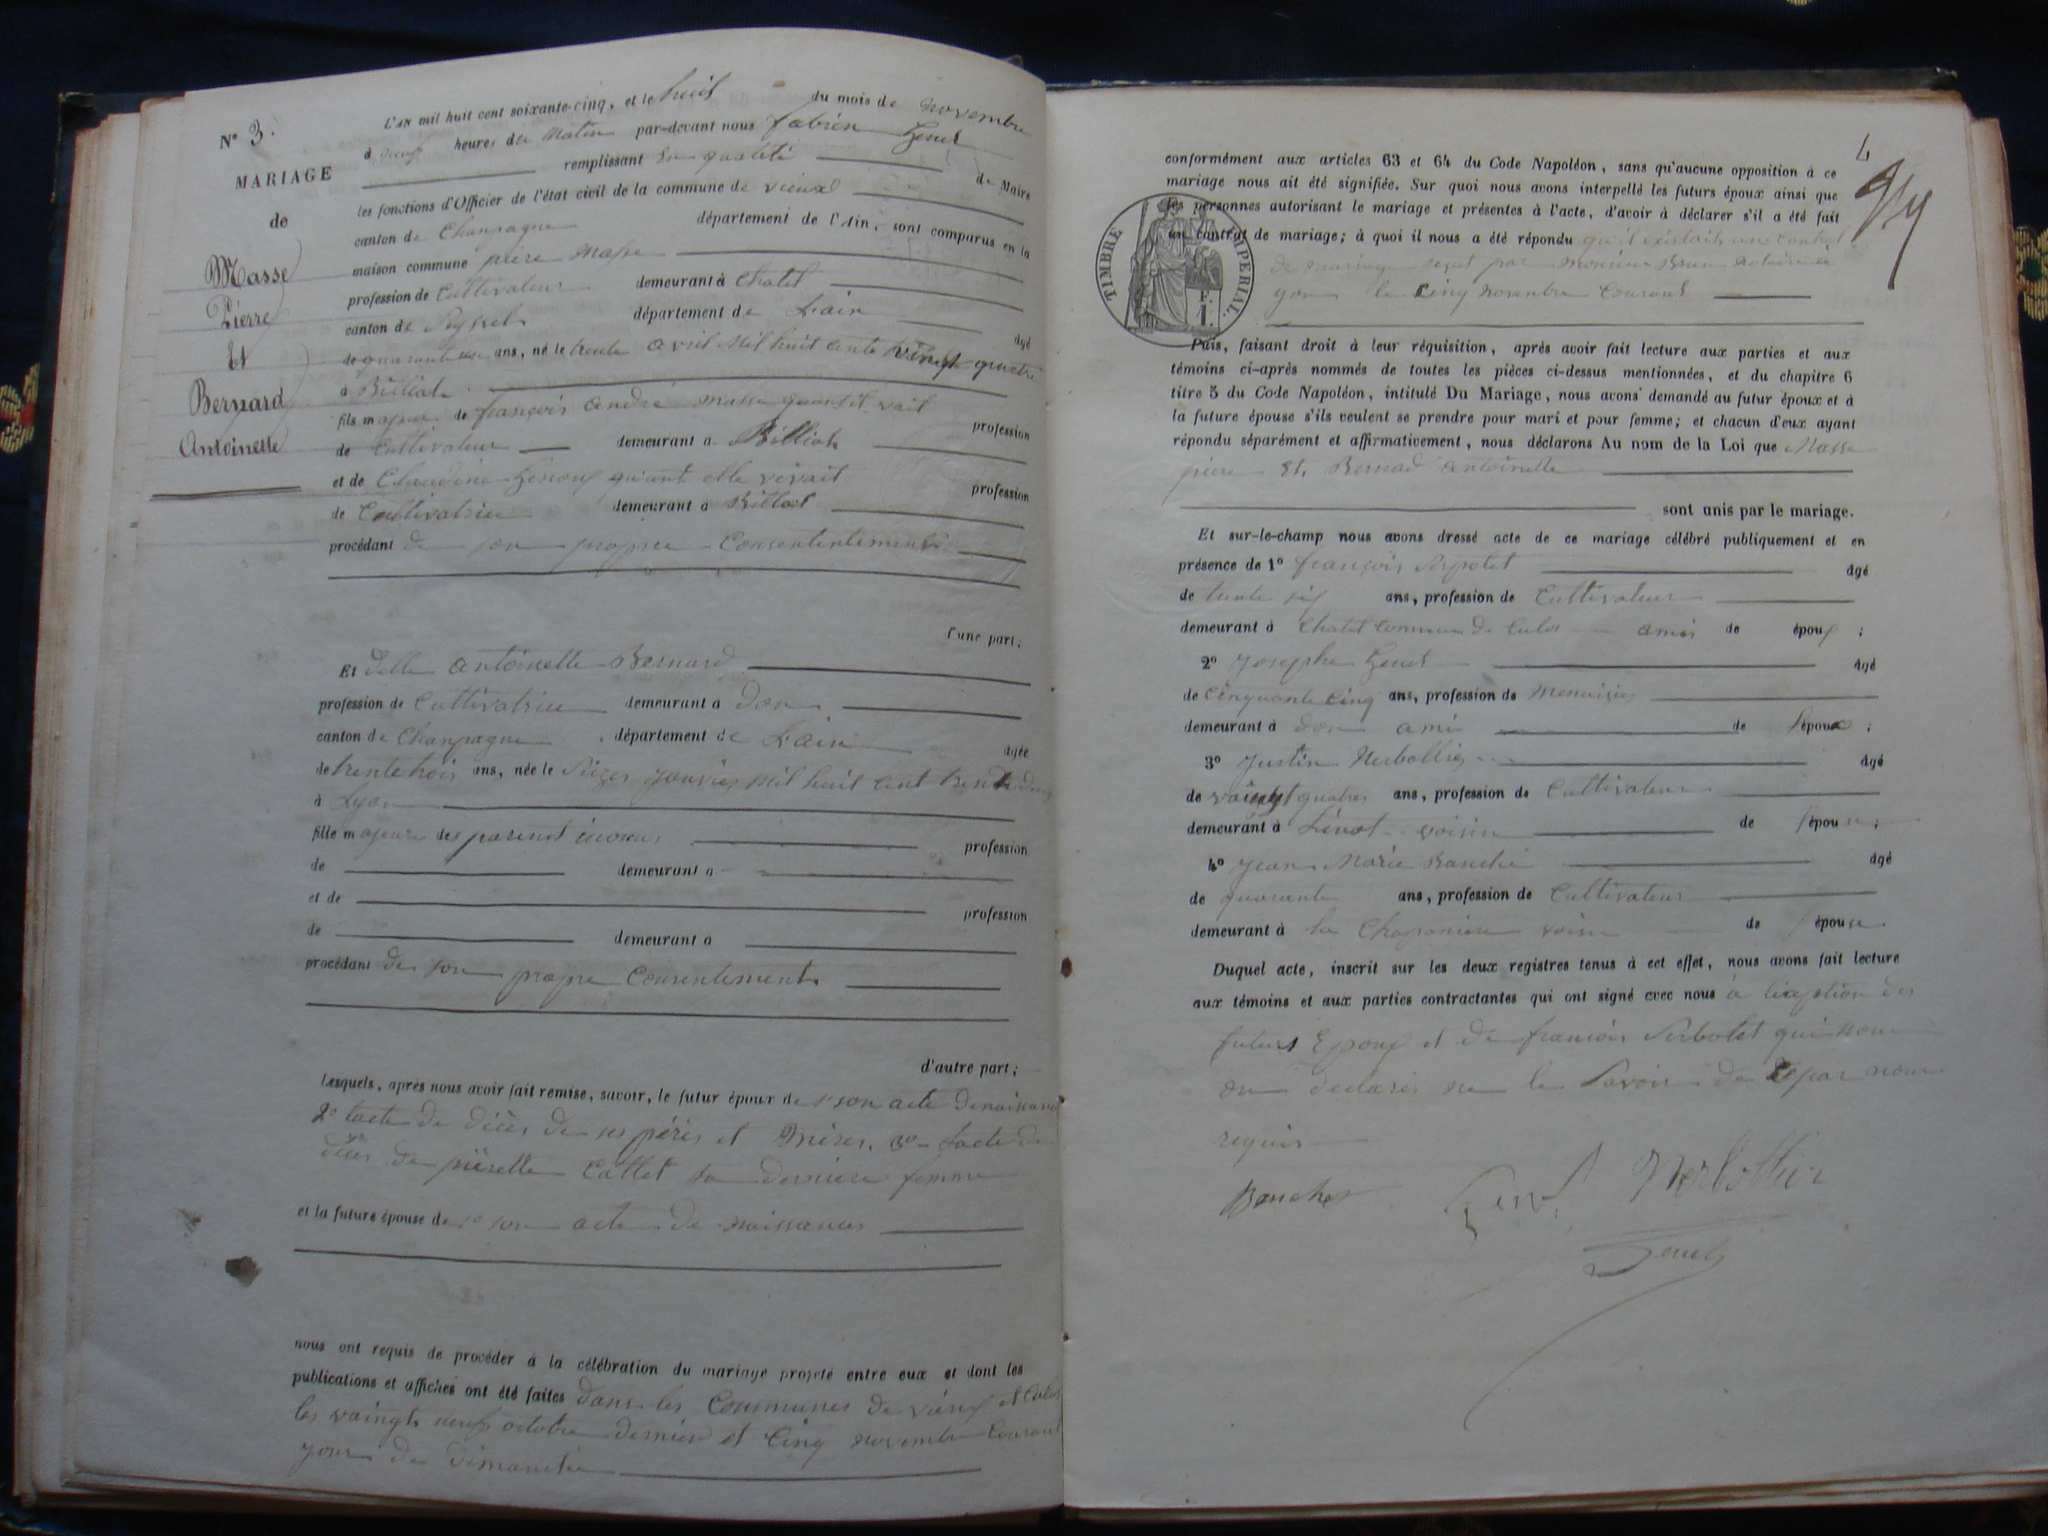 N° 3.
MARIAGE
de
Masse
Pierre
Et
Bernard
Antoinette
L'an mil huit cent soixante-cinq, et le huit du mois de novembre
à neuf heures du matin par-devant nous fabien
remplissant la qualité de Maire
les fonctions d'Officier de l'état civil de la commune de vieux
canton de Champagne département de l'Ain, sont comparus en la
maison commune piere Masse
profession de Cultivateur demeurant à Chatel
canton de Seyssel département de L'ain âgé
de quarante ans, né le trente avril Mil huit cents vingt quatre
à Billiat
fils majeur de françois andré masse quand il vait profession
de Cultivateur demeurant à Billiat
et de Claudine quant elle vivait profession
de Cultivatrice demeurant à Billiat
procédant de son propre
d'une part;
Et delle antoinette Bernard
profession de Cultivatrice demeurant à Don
canton de Champagne département de L'ain âgée
de trente trois ans, née le janvier mil huit cent
à Lyon
fille majeure des parents profession
de demeurant à
et de profession
de demeurant à
procédant de son propre Consentement
d'autre part;
Lesquels, après nous avoir fait remise, savoir, le futur époux de 1° son acte de naissance
2° lacte de décès de ses pères et Mères, 3° Lacte de
décès de pierette Callet sa derniere femme
et la future épouse de 1° son acte de naissances
nous ont requis de procéder à la célébration du mariage projeté entre eux et dont les
publications et affiches ont été faites dans les Communes de vieux et Culoz
les vaingts neuf octobre dernier et Cinq novembre Courant
jour de dimanche
4
conformément aux articles 63 et 64 du Code Napoléon, sans qu'aucune opposition à ce
mariage nous ait été signifiée. Sur quoi nous avons interpellé les futurs époux ainsi que
les personnes autorisant le mariage et présentes à l'acte, d'avoir à déclarer s'il a été fait
un contrat de mariage; à quoi il nous a été répondu qu'il éxistait un contrat
de mariage reçut par monsieur Brun notaire a
yon le cinq novembre Courant
TIMBRE IMPERIAL.
F.
1.
Puis, faisant droit à leur réquisition, après avoir fait lecture aux parties et aux
témoins ci-après nommés de toutes les pièces ci-dessus mentionnées, et du chapitre 6
titre 5 du Code Napoléon, intitulé Du Mariage, nous avons demandé au futur époux et à
la future épouse s'ils veulent se prendre pour mari et pour femme; et chacun d'eux ayant
répondu séparément et affirmativement, nous déclarons Au nom de la Loi que Masse
piere et Bernad antoinette
sont unis par le mariage.
Et sur-le-champ nous avons dressé acte de ce mariage célébré publiquement et en
présence de 1° françois âgé
de trente six ans, profession de Cultivateur
demeurant à Chatel Commune de Culoz amis de époux;
2° Josephe âgé
de Cinquante cinq ans, profession de Menuisier
demeurant à don ami de l'époux;
3° Justin Herbollier âgé
de vaingt quatres ans, profession de Cultivateur
demeurant à voisin de l'épouse;
4° Jean Marie âgé
de quarante ans, profession de Cultivateur
demeurant à la Chaponiere voisin de l'épouse
Duquel acte, inscrit sur les deux registres tenus à cet effet, nous avons fait lecture
aux témoins et aux parties contractantes qui ont signé avec nous a léxeption des
futurs Epoux et de francois qui nous
on declarés ne le Savoir de par nous
requis
Herbollier